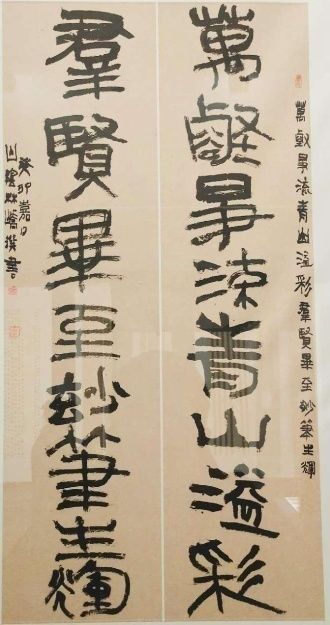 萬壑爭流青山溢彩羣賢畢至妙筆生輝
萬壑爭流青山溢彩
羣賢畢至妙筆生輝
癸卯嘉月